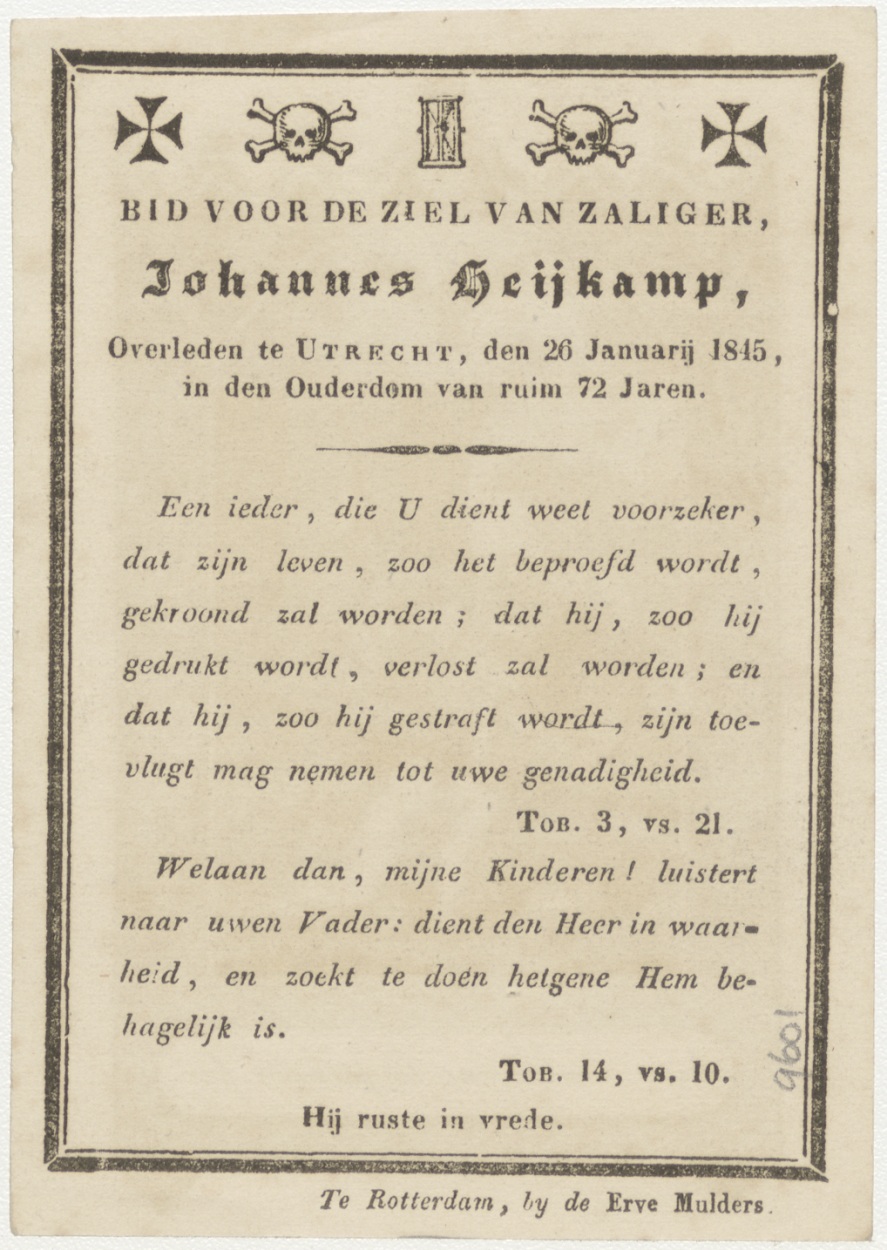 BID VOOR DE ZIEL VAN ZALIGER,
Johannes Heijkamp,
Overleden te UTRECHT, den 26 Januarij 1845,
in den Ouderdom van ruim 72 Jaren.
Een ieder, die U dient weet voorzeker,
dat zijn leven, zoo het beproefd wordt,
gekroond zal worden; dat hij, zoo hij
gedrukt wordt, verlost zal worden; en
dat hij, zoo hij gestraft wordt, zijn toe-
vlugt mag nemen tot uwe genadigheid.
TOB. 3, vs. 21.
Welaan dan, mijne Kinderen! luistert
naar uwen Vader: dient den Heer in waar-
heid, en zoekt te doen hetgene Hem be-
hagelijk is.
TOB. 14, vs. 10.
Hij ruste in vrede.
Te Rotterdam, by de Erve Mulders.